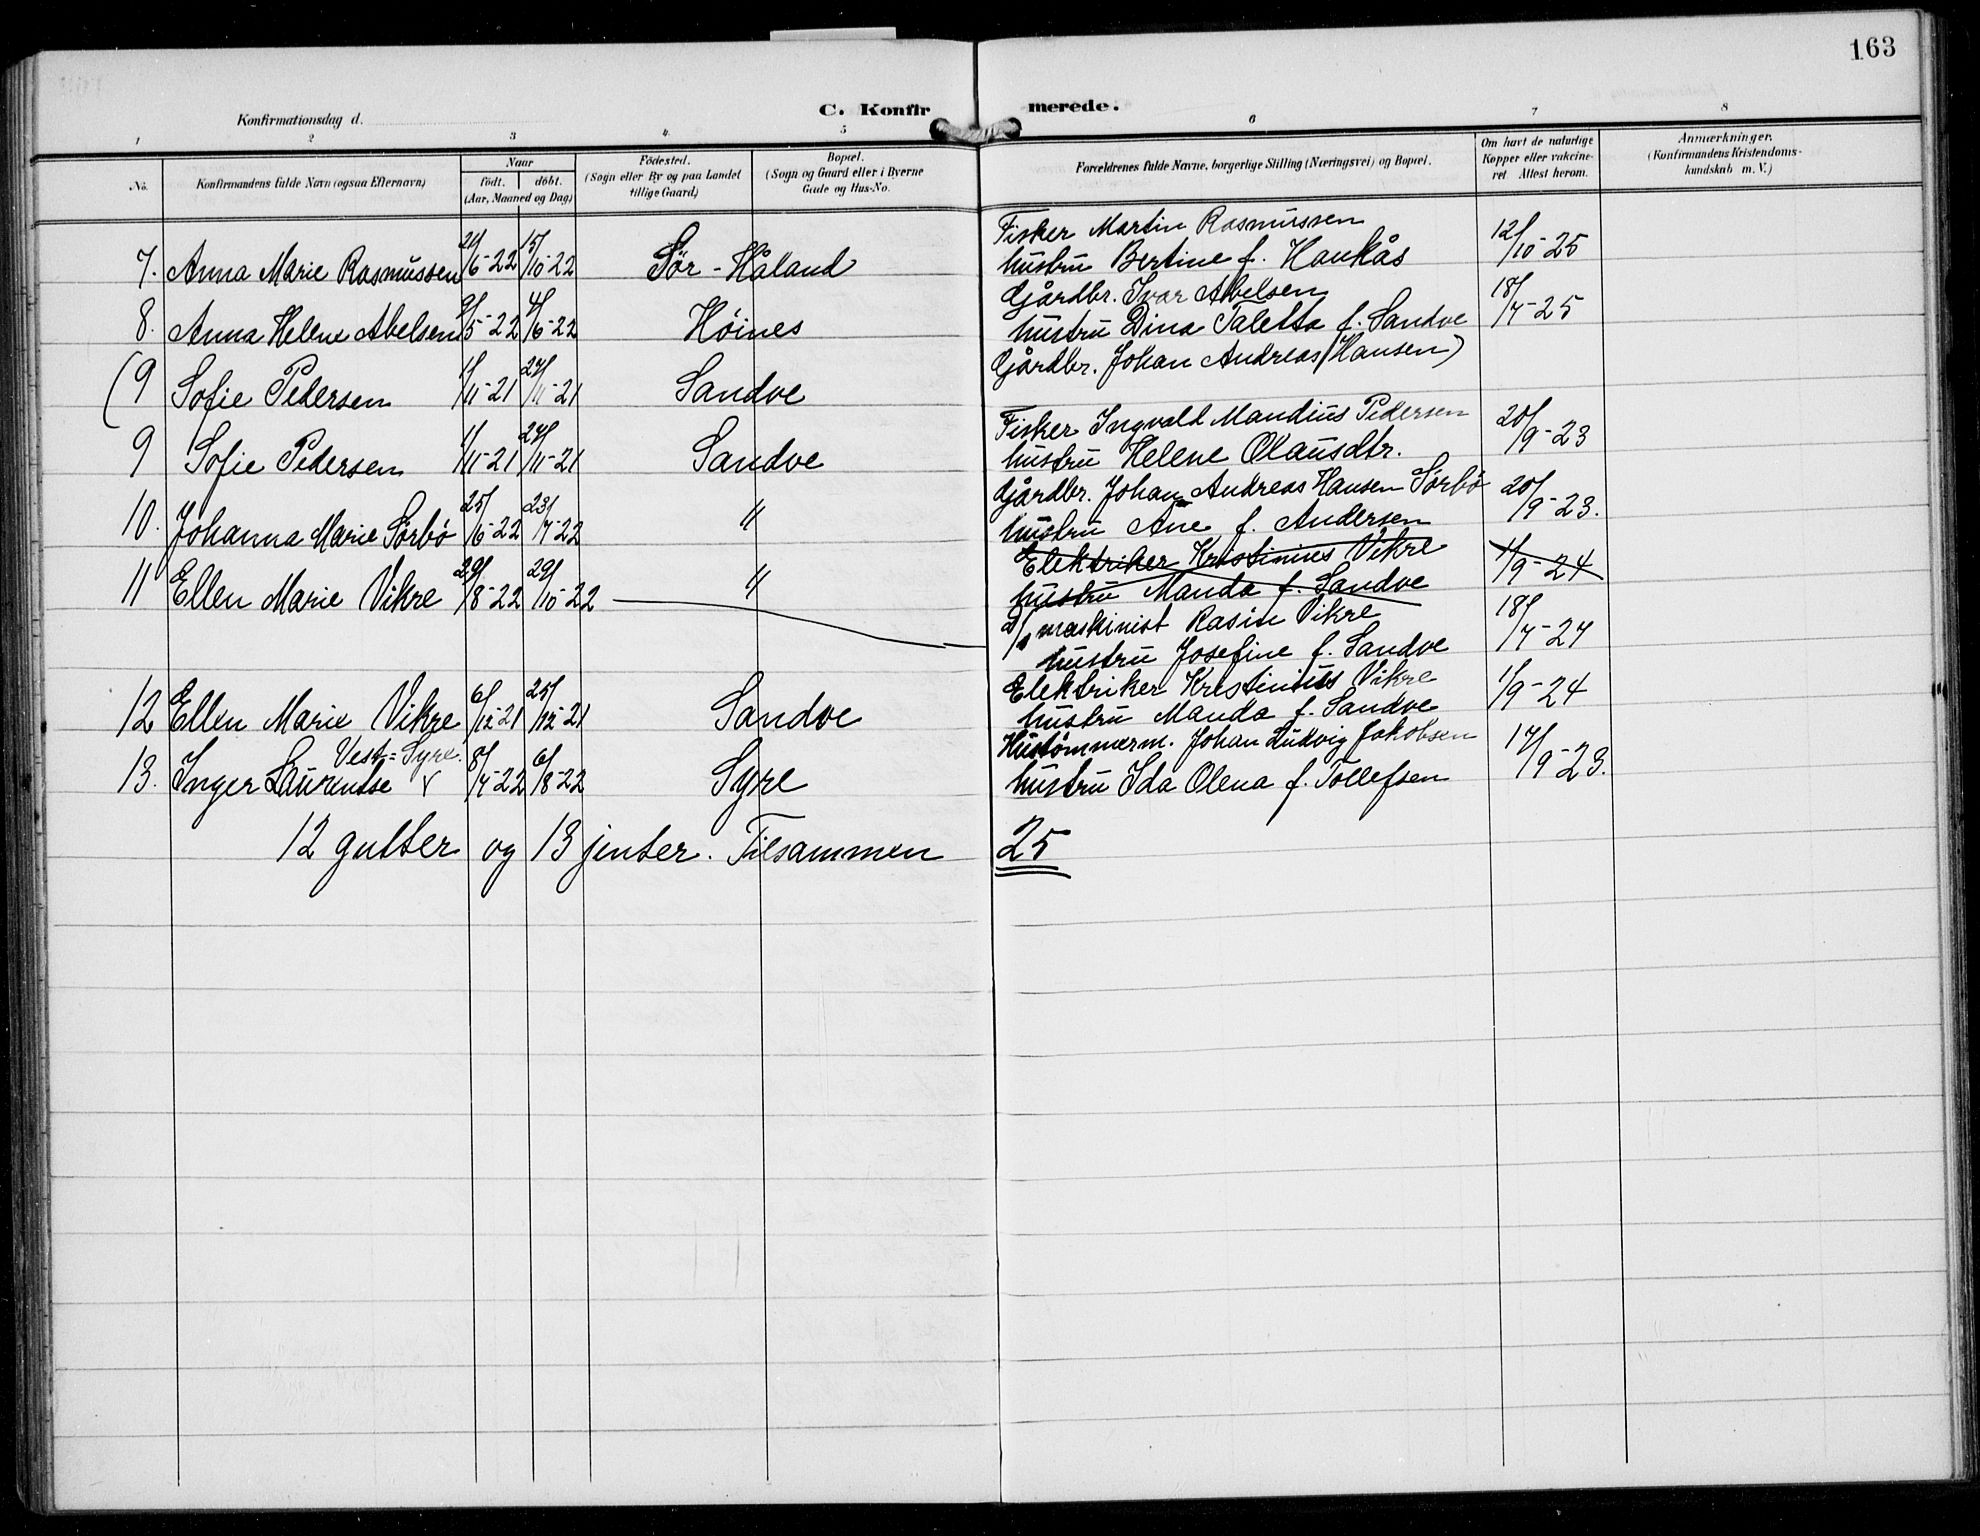 163
C. Konfirmerede.
Konfirmationsdag d.
1 2 3 4 5 6 7 8
No.
Konfirmandens fulde Navn (ogsaa Efternavn)
Naar
födt. döbt.
(Aar, Maaned og Dag)
Födested.
(Sogn eller By og paa Landet
tillige Gaard)
Bopæl.
(Sogn og Gaard eller i Byerne
Gade og Hus-No.
Forældrenes fulde Navne, borgerlige Stilling (Næringsvei) og Bopæl.
Om havt de naturlige
Kopper eller vakcine-
ret Attest herom.
Anmærkninger.
(Konfirmandens Kristendoms-
kundskab m. V.)
Fisker Martin Rasmussen
7. Anna Marie Rasmussen /6-22 15/10-22 Sör-Håland hustru Bertine f. Haukås 12/10-25
Gjårdbr. Ivar Abelsen
8. Anna Helene Abelsen /5-22 4/6-22 Höines hustru Dina Taletta f. Sandve 18/7-25
Gjårdbr. Johan Andreas (Hansen)
(9 Sofie Pedersen 1/11-21 24/11-21 Sandve
Fisker Ingvald Mandius Pedersen
9 Sofie Pedersen 1/11-21 24/11-21 Sandve hustru Helene Olausdtr. 20/9-23
Gjårdbr. Johan Andreas Hansen Sörbö
10. Johanna Marie Sörbö 25/6-22 23/7-22 " hustru Ane f. Andersen 20/9-23.
Elektriker Kristinius Vikre
11 Ellen Marie Vikre 29/8-22 29/10-22 " hustru Manda f. Sandve 1/9-24
D/s maskinist Rasin Vikre
hustru Josefine f. Sandve 18/7-27
Elektriker Kristinius Vikre
12 Ellen Marie Vikre 6/12-21 25/12-21 Sandve hustru Manda f. Sandve 1/9-24
Vest-Syre. Hustömmerm. Johan Ludvig Jakobsen
13. Inger Laurentse v 8/7-22 6/8-22 Syre hustru Ida Olena f. Tollefsen 17/9-23.
12 gutter og 13 jenter. Tilsammen 25